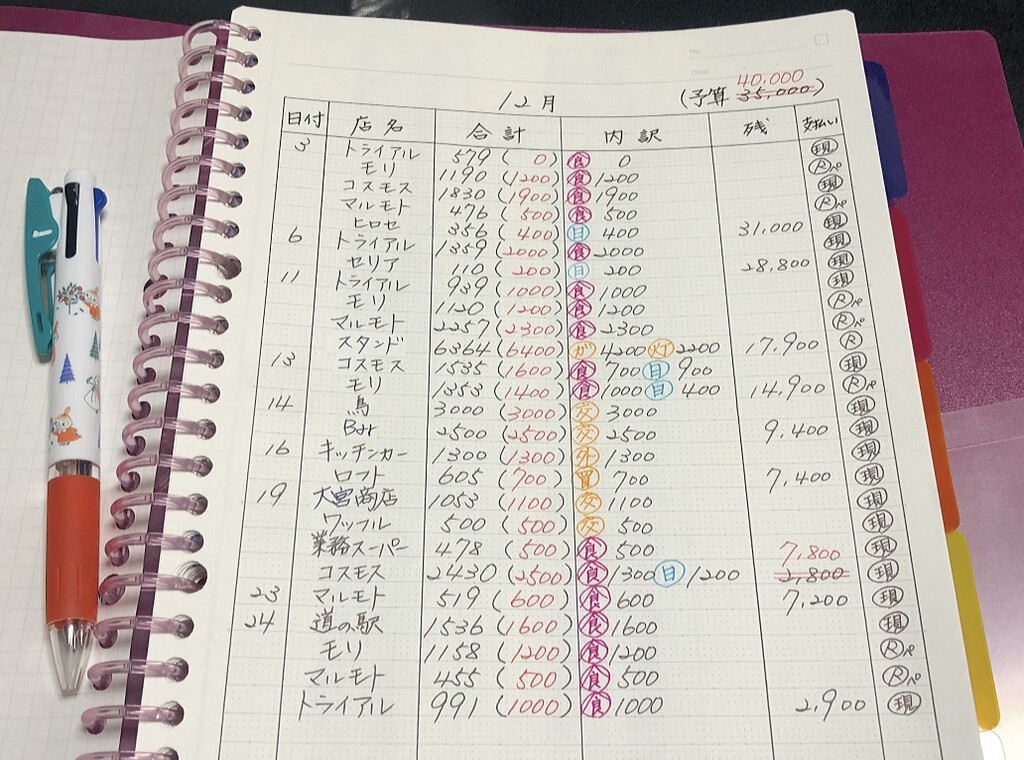 No.
Date
40,000
12月 (予算 35,000)
日付 店名 合計 内訳 残 支払い
3 トライアル 579 (0) 食 0 現
モリ 1190 (1200) 食 1200 Rペ
コスモス 1830 (1900) 食 1900 現
マルモト 476 (500) 食 500 Rペ
ヒロセ 356 (400) 日 400 31,000 現
6 トライアル 1359 (2000) 食 2000 現
セリア 110 (200) 日 200 28,800 現
11 トライアル 939 (1000) 食 1000 現
モリ 1120 (1200) 食 1200 Rペ
マルモト 2257 (2300) 食 2300 Rペ
スタンド 6364 (6400) ガ 4200 灯 2200 17,900 R
13 コスモス 1535 (1600) 食 700 日 900 現
モリ 1353 (1400) 食 1000 日 400 14,900 Rペ
14 鳥 3000 (3000) 交 3000 現
Bar 2500 (2500) 交 2500 9,400 現
16 キッチンカー 1300 (1300) 外 1300 現
ロフト 605 (700) 買 700 7,400 現
19 大宮商店 1053 (1100) 交 1100 現
ワッフル 500 (500) 交 500 現
業務スーパー 478 (500) 食 500 7,800 現
コスモス 2430 (2500) 食 1300 日 1200 2,800 現
23 マルモト 519 (600) 食 600 7,200 現
24 道の駅 1536 (1600) 食 1600 現
モリ 1158 (1200) 食 1200 Rペ
マルモト 455 (500) 食 500 Rペ
トライアル 991 (1000) 食 1000 2,900 現